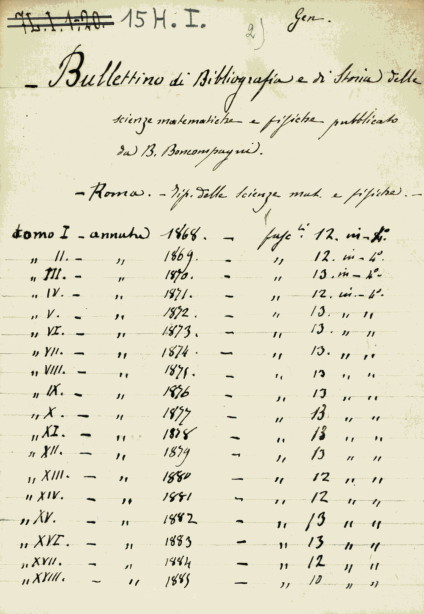 7L.I.1-20. 15 H. I. Gen.
2)
- Bullettino di Bibliografia e di Storia delle
scienze matematiche e fisiche pubblicato
da B. Boncompagni.
- Roma. - Tip. delle scienze mat. e fisiche. -
tomo I - annata 1868. - fasc.li 12. in-4°.
„ II. - „ 1869. - „ 12. in-4°.
„ III. - „ 1870. - „ 13. in-4°.
„ IV. - „ 1871. - „ 12. in-4°.
„ V. - „ 1872 - „ 13. „ „
„ VI. - „ 1873. - „ 13. „ „
„ VII. - „ 1874. - „ 13. „ „
„ VIII. - „ 1875. - „ 13 „ „
„ IX. - „ 1876 - „ 13 „ „
„ X. - „ 1877 - „ 13 „ „
„ XI. - „ 1878 - „ 13 „ „
„ XII. - „ 1879 - „ 13 „ „
„ XIII. - „ 1880 - „ 12 „ „
„ XIV. - „ 1881 - „ 12 „ „
„ XV. - „ 1882 - „ 13 „ „
„ XVI. - „ 1883 - „ 13 „ „
„ XVII. - „ 1884 - „ 12 „ „
„ XVIII. - „ 1885 - „ 10 „ „